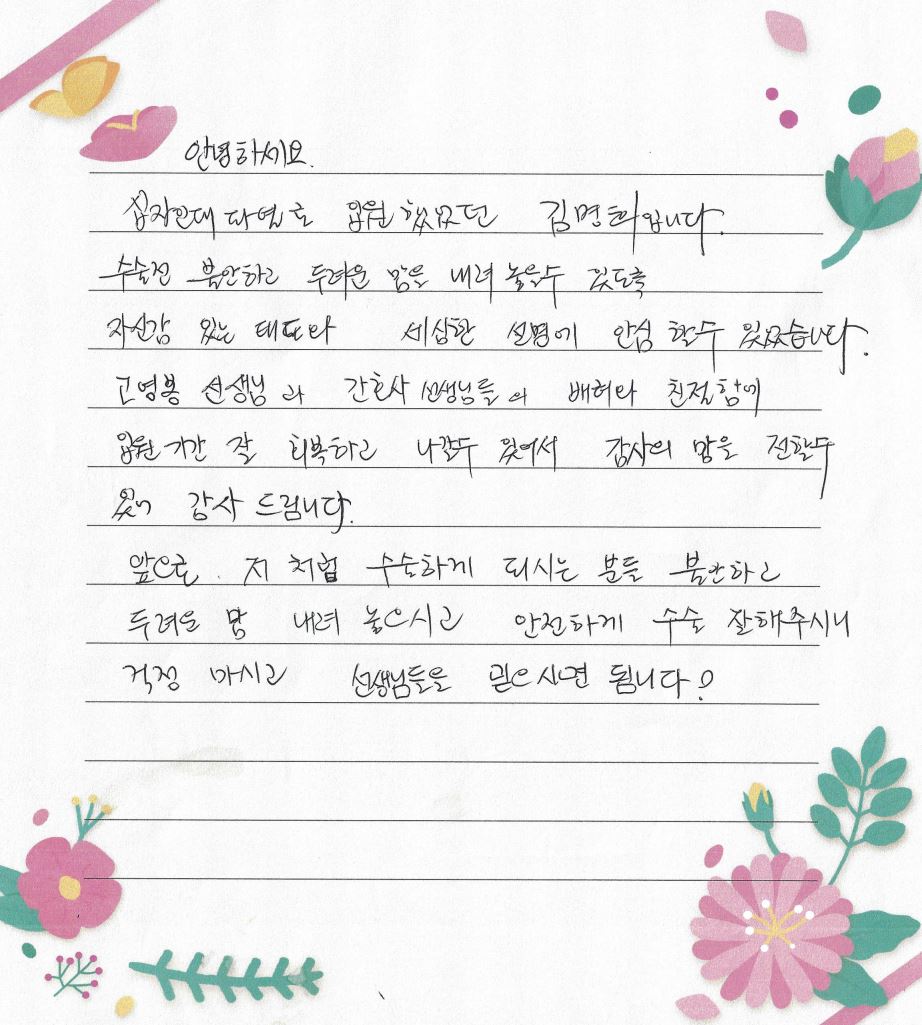 안녕하세요.
십자인대 파열로 입원 했었던 김명희입니다.
수술전 불안하고 두려운 맘을 내려 놓을수 있도록
자신감 있는 태도와 세심한 설명에 안심 할수 있었습니다.
고영봉 선생님과 간호사 선생님들의 배려와 친절함에
입원기간 잘 회복하고 나갈수 있어서 감사의 맘을 전할수
있어 감사 드립니다.
앞으로 저 처럼 수술하게 되시는 분들 불안하고
두려운 맘 내려 놓으시고 안전하게 수술 잘해주시니
걱정 마시고 선생님들을 믿으시면 됩니다?